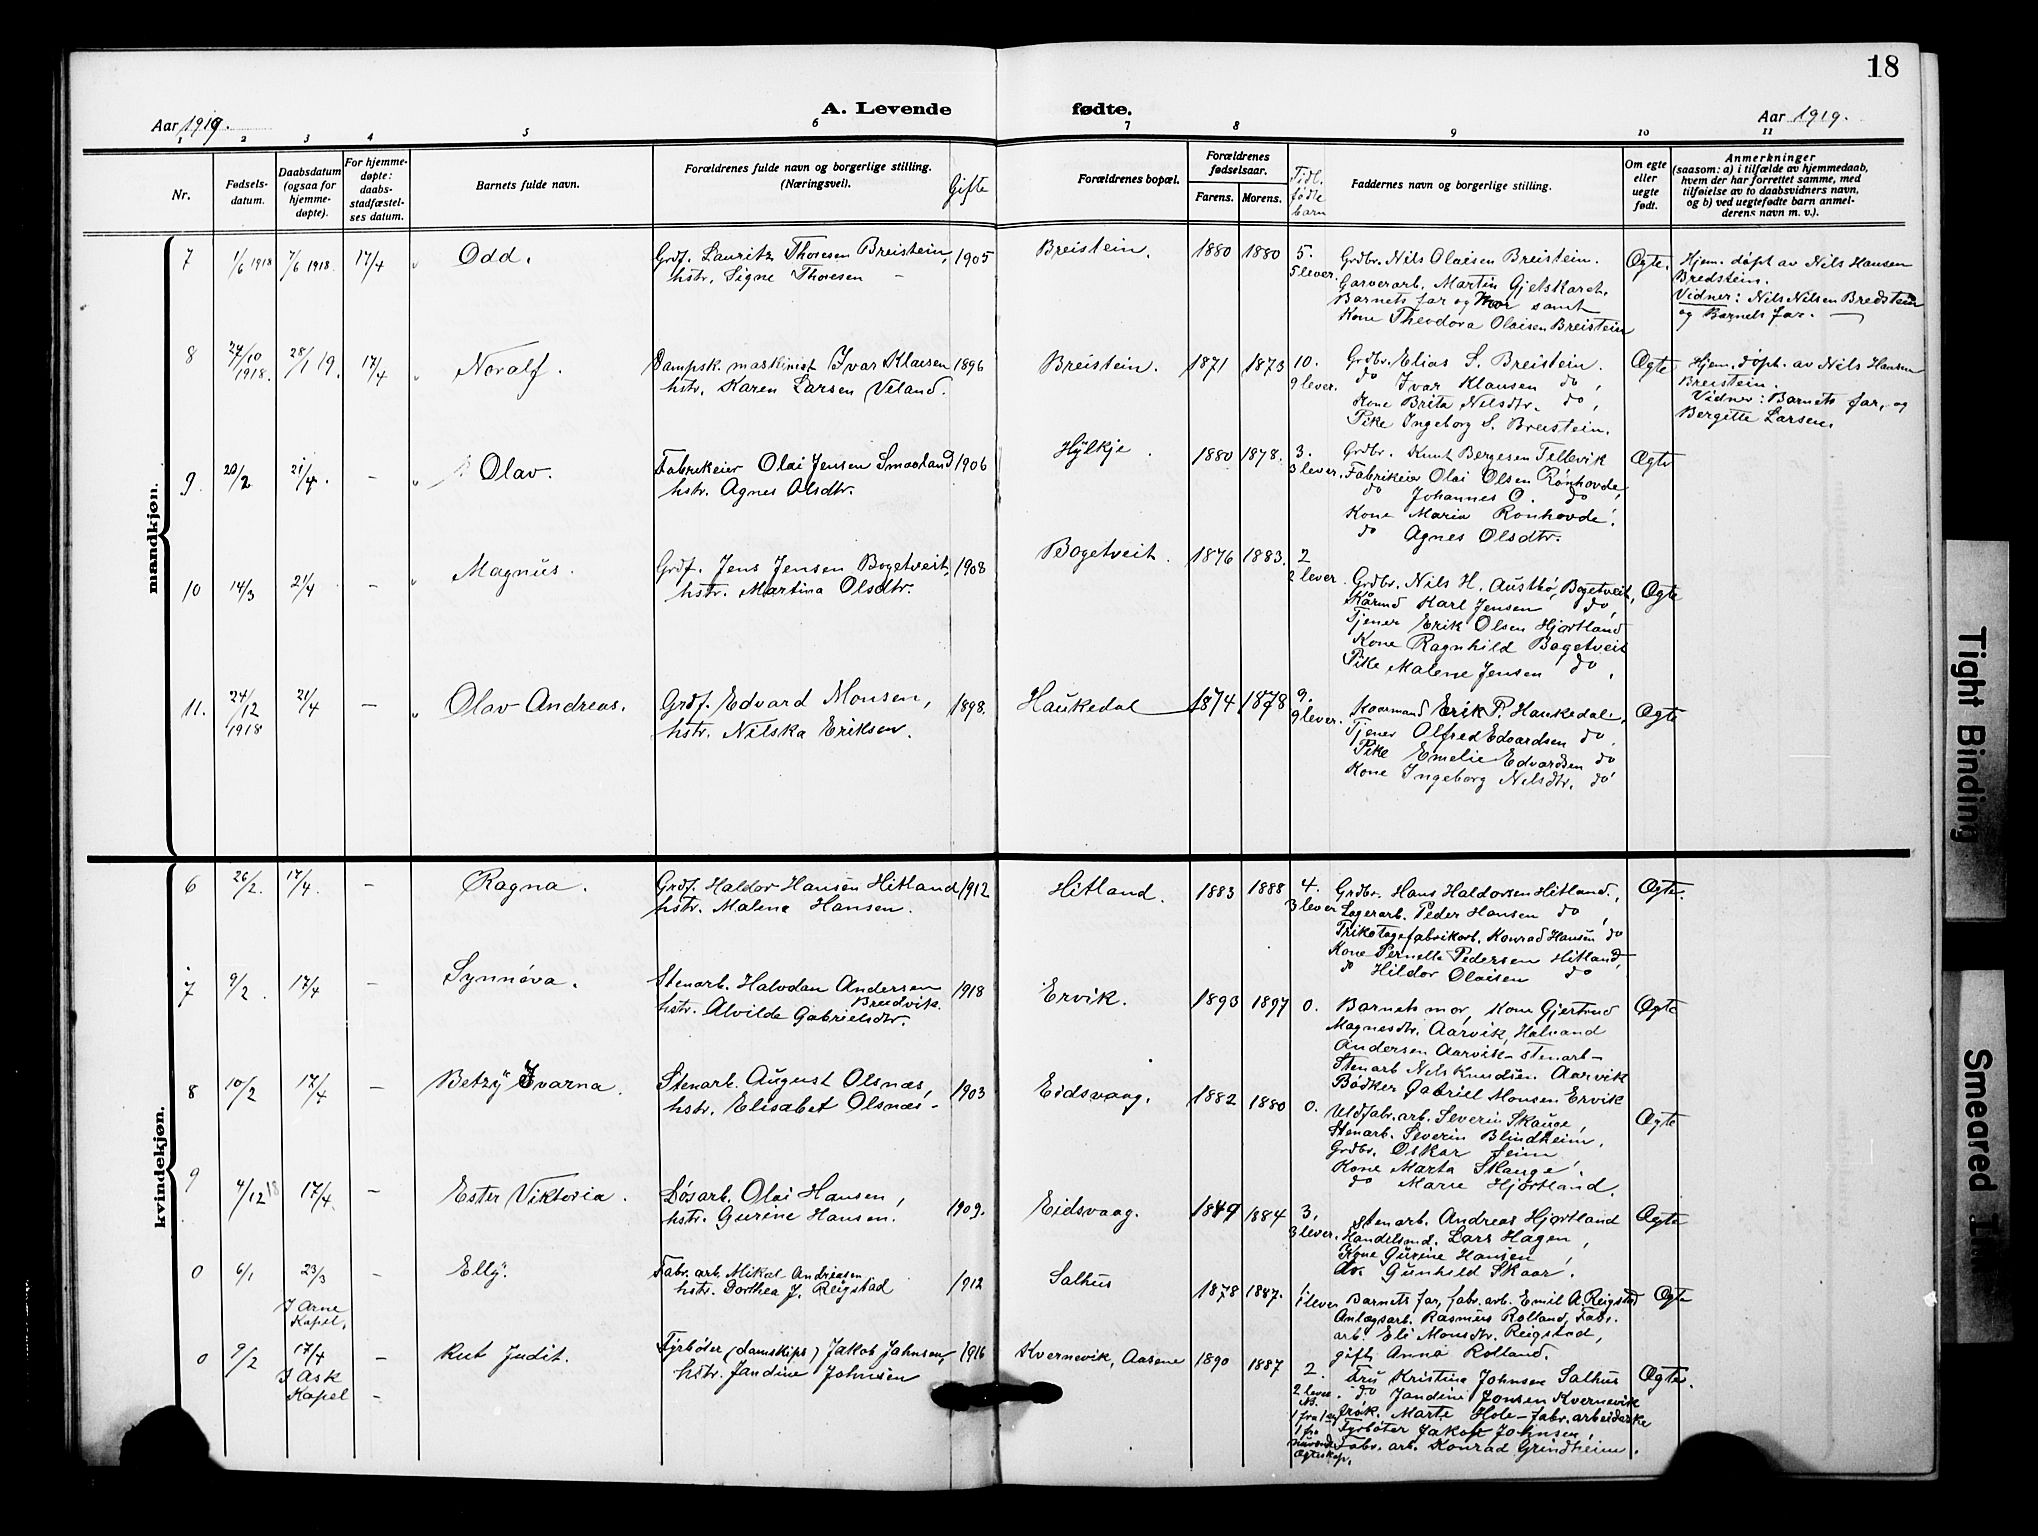 18
A. Levende fødte.
Aar 1919.
Aar 1919.
1 2 3 4 5 6 7 8 9 10 11
Nr.
Fødsels-
datum.
Daabsdatum
(ogsaa for
hjemme-
døpte).
For hjemme-
døpte:
daabs-
stadfæstel-
ses datum.
Barnets fulde navn.
Forældrenes fulde navn og borgerlige stilling.
(Næringsvei).
Gifte
Forældrenes bopæl.
Forældrenes
fødselsaar.
Farens. Morens.
Tidl.
fødte
barn
Faddernes navn og borgerlige stilling.
Om egte
eller
uegte
født.
Anmerkninger
(saasom: a) i tilfælde av hjemmedaab,
hvem der har forrettet samme, med
tilføielse av to daabsvidners navn,
og b) ved uegtefødte barn anmel-
derens navn m. v.).
mandkjøn.
7 1/6 1918 7/6 1918. 17/4 Odd. Grdf. Lauritz Thoresen Breistein, 1905 Breistein. 1880 1880 5. Grdbr. Nils Olaisen Breistein. Ægte. Hjem. døpt av Nils Hansen
hstr. Signe Thoresen 5 lever Garverarb. Martin Gjetskaret. Bredstein.
Barnets far og mor samt Vidner: Nils Nilsen Bredstein
Kone Theodora Olaisen Breistein og Barnets far.
8 27/10 1918. 28/1 19. 17/4 Noralf. Dampsk. maskinist Ivar Klausen 1896 Breistein. 1871 1873 10. Grdbr. Elias S. Breistein. Ægte Hjem. døpt. av Nils Hansen
hstr. Karen Larsen Veland. 9 lever. do Ivar Klausen do, Breistein.
Kone Brita Nelsdtr. do, Vidner: Barnets far, og
Pike Ingeborg S. Breistein. Bergitte Larsen.
9. 20/2 21/4. - Olav. Fabrikeier Olai Jensen Smaaland 1906 Hylkje. 1880 1878. 3. Grdbr. Knut Bergesen Tellevik Ægte
hstr. Agnes Olsdtr. 3 lever. Fabrikeier Olai Olsen Rønhovde,
do Johannes O. do
Kone Maria Rønhovde.
do Agnes Olsdtr.
10 14/3 21/4 - Magnus. Grdf. Jens Jensen Bogetveit, 1908 Bogetveit. 1876 1883. 2
hstr. Martina Olsdtr. 2 lever. Grdbr. Nils H. Austbø, Bogetveit, Ægte
Kårmd Karl Jensen do,
Tjener Erik Olsen Hjortland
Kone Ragnhild Bogetveit
Pike Malene Jensen do.
11. 24/12 1918 21/4 - Olav Andreas. Grdf. Edvard Monsen, 1898. Haukedal 1874 1878 9. Kaarmand Erik P. Haukedal, Ægte
hstr. Nilska Eriksen. 9 lever. Tjener Olfred Edvardsen do.
Pike Emelie Edvardsen do
Kone Ingeborg Nilsdtr. do
kvindekjøn.
6 26/2. 17/4. - Ragna. Grdf. Haldor Hansen Hitland 1912 Hitland. 1883 1888 4. Grdbr. Hans Haldorsen Hitland, Ægte.
hstr. Malene Hansen. 3 lever Lagerarb. Peder Hansen do,
Trikotagefabrikarb. Konrad Hansen do
Kone Pernella Pedersen Hitland,
do Hildor Olaisen do
7 9/2. 17/4 - Synnøva. Stenarb. Halvdan Andersen 1918 Ervik. 1893 1897 0. Barnets mor, Kone Gjertrud Ægte
Breidvik.
hstr. Alvilde Gabrielsdtr. Magnesdtr. Aarvik, Halvand
Andersen Aarvik - stenarb -
Stenarb Nels Knudsen Aarvik
Bødker Gabriel Monsen Ervik
8 10/2 17/4 - Betzy Ivarna. Stenarb. August Olsnæs, 1903 Eidsvaag. 1882 1880 0. Uldfabr. arb. Severin Skauge, Ægte
hstr. Elisabet Olsnæs - Stenarb. Severin Blindheim.
Grdbr. Oskar Seim
Kone Marta Skauge.
do Marie Hjortland.
9 4/12 18 17/4. - Ester Viktoria. Løsarb. Olai Hansen, 1909. Eidsvaag. 1849 1884 3. Stenarb. Andreas Hjortland Ægte
hstr. Gurine Hansen. 3 lever. Handelsmd. Lars Hagen,
Kone Gurine Hansen,
do. Gunhild Skaar.
0 6/1 23/3 - Elly. Fabr. arb. Mikal Andreasen 1912 Salhus 1878 1887. 1 lever Barnets far, fabr. arb. Emil A. Reigstad Ægte
I Arne
Kapel. hstr. Dorthea J. Reigstad Anlægsarb. Rasmus Rolland, Fabr.
arb. Eli Monsdtr. Reigstad,
gift, Anna Rolland.
0 9/2 17/4 - Rut Judit. Fyrbøter (damskips) Jakob Johnsen, 1916 Kvernevik, Aasene 1890 1887 2. Fru Kristina Johnsen Salhus Ægte.
I Ask
Kapel - hstr. Jandine Johnsen 2 lever do Jandine Jonsen Kvernevik
frøk. Marte Hole - fabr. arbeiderske
Fyrbøter Jakob Johnsen,
Fabr. arb. Konrad Grindheim.
Tight Binding
Smeared